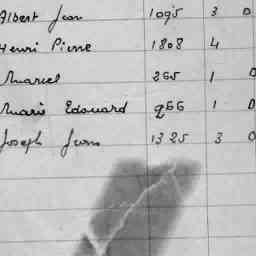 Albert Jean 1095 3 0
Henri Pierre 1808 4
Marcel 265 1 0
Marie Edouard 266 1 0
Joseph Jean 1325 3 0